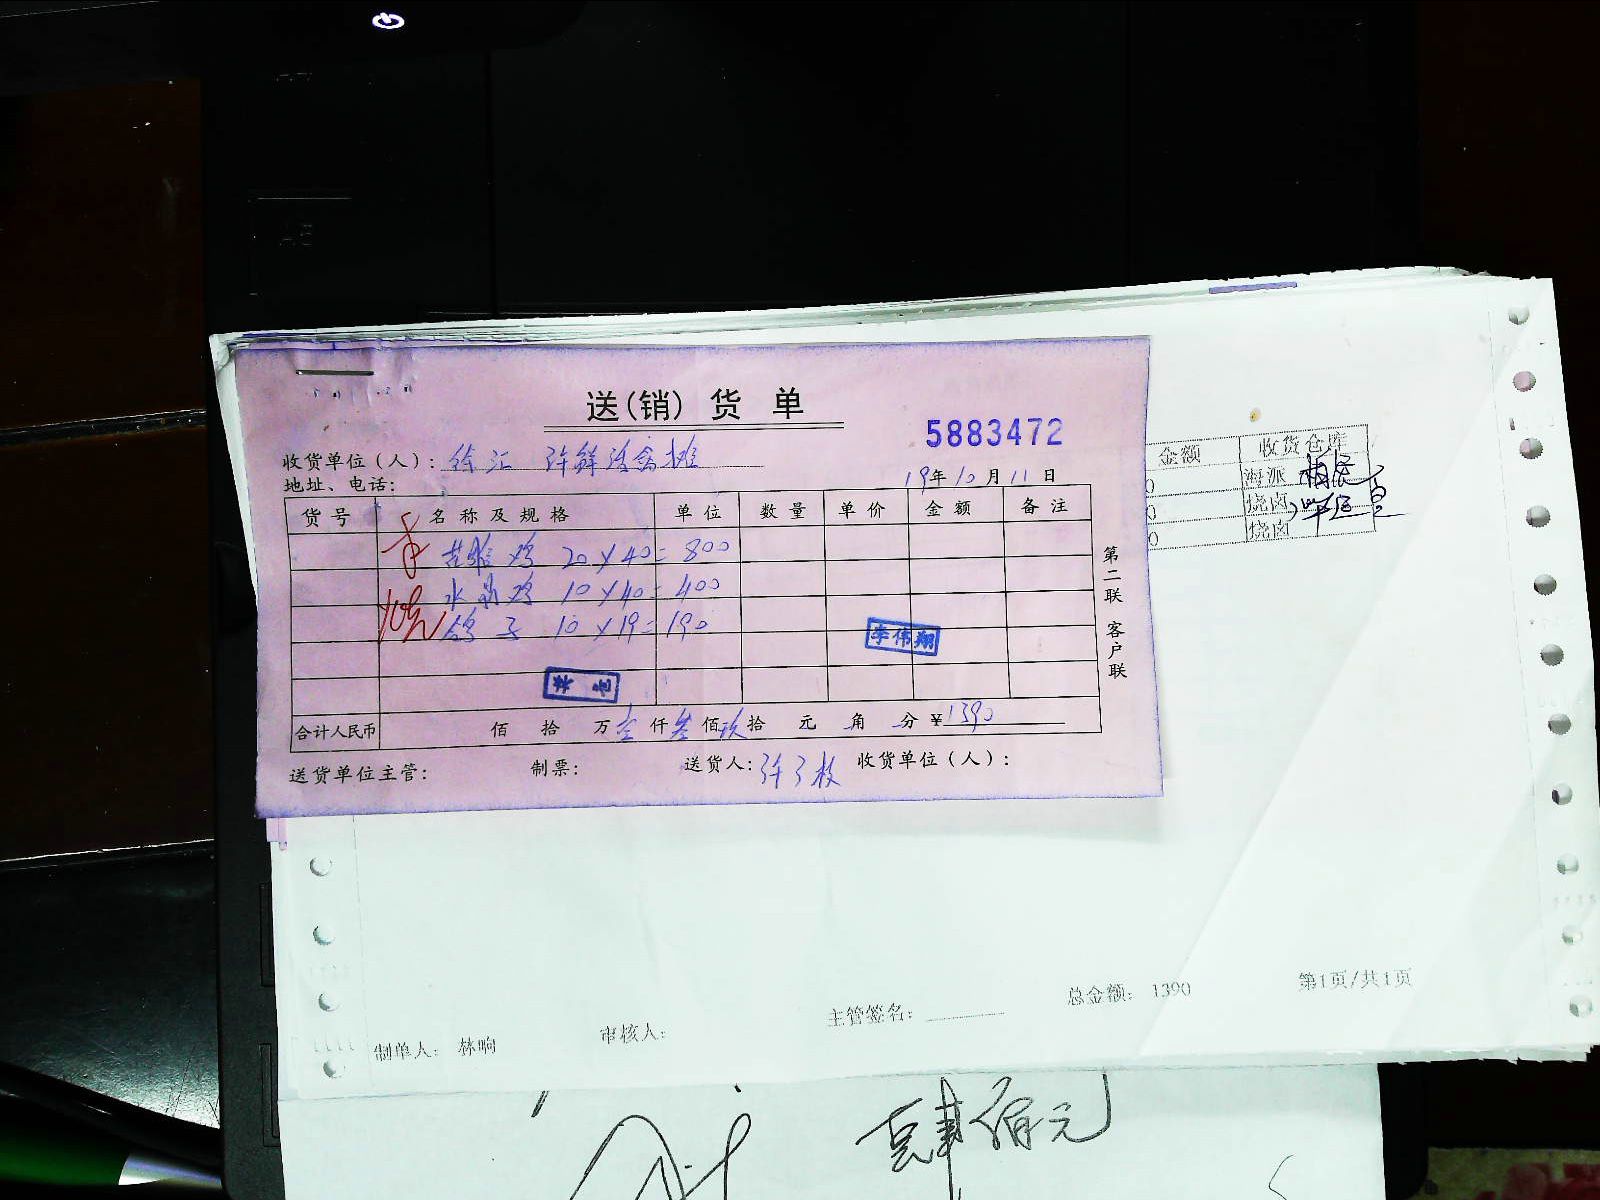 送(销) 货 单
5883472
收货单位(人): 徐汇 许鲜活禽摊
地址、电话:
19年10月11日
货号 名称及规格 单位 数量 单价 金额 备注
鸡 20×40=800
水晶鸡 10×40=400
烧 鸽子 10×19=190
李伟翔
合计人民币 佰 拾 万壹仟叁佰玖拾 元 角 分 ¥1390
送货单位主管: 制票: 送货人: 许 收货单位(人):
第二联 客户联
金额 收货仓库
0 海派
0 烧卤
0 烧卤
总金额: 1390 第1页/共1页
制单人: 林响 审核人: 主管签名:
肆佰元